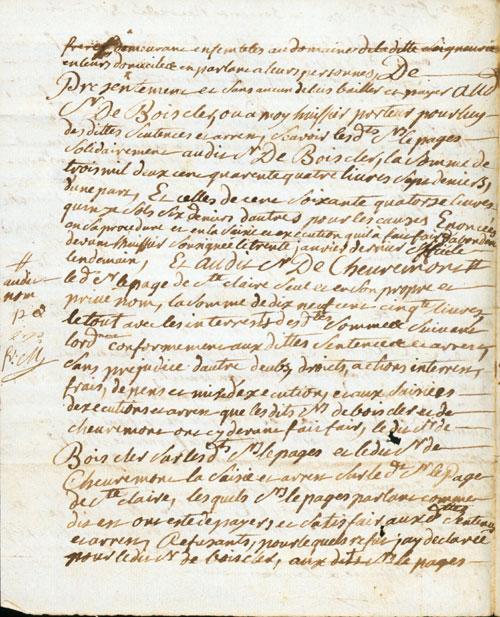 freres demourans ensembles au domaine de ladite seigneurie
en leurs domicilles en parlans a leurs personnes, De
Presentement et sans aucun delais bailler et payer aud
Sr. De Boiscler, ou a moy huissier porteur pour luy
desdittes Sentences et arrest, Scavoir lesds. Srs. le pages
Solidairement audit Sr. De Boiscler, la Somme de
trois mil deux cens quarente quatre livres Six deniers,
dune part, Et celles de cens Soixante quatorze livres
quinze Sols Six deniers dautres pour les causes Enoncées
en la procedure et en la Saisie et execution quil a fait faire dabondans
devans huissier Soussigné le trente janvier dernier
lendemain, Et audit Sr. De Cheuremont #
led. Sr. le page de Ste. claire Seul et en Son propre et
privé nom, la Somme de dix neuf cens cinqte livres,
le tout avec les interrests desds. Sommes Suivant
lord conformement aux dittes Sentences et arrest,
Sans prejudice dautre deubs, droits, actions interrests,
frais, depens et mises dexecution, et aux Saisies
dexecutions et arrest que lesdits Srs. de boiscler et de
cheuremont ont cy devant fait fair, ledit Sr. de
Bois cler Sur lesds. Srs. le pages et ledit Sr. de
Cheuremont la Saisie et arrest Sur led. Sr. le page
de Ste. claire, les quels Srs. le pages parlans comme
dit est ont esté de payer, et Satisfair aux dttes. Sentences
et arrest, Refusants, pour lequels refus jay declarée
pour ledit Sr. de boiscler, aux dits Srs. le pages
#
audit
nom